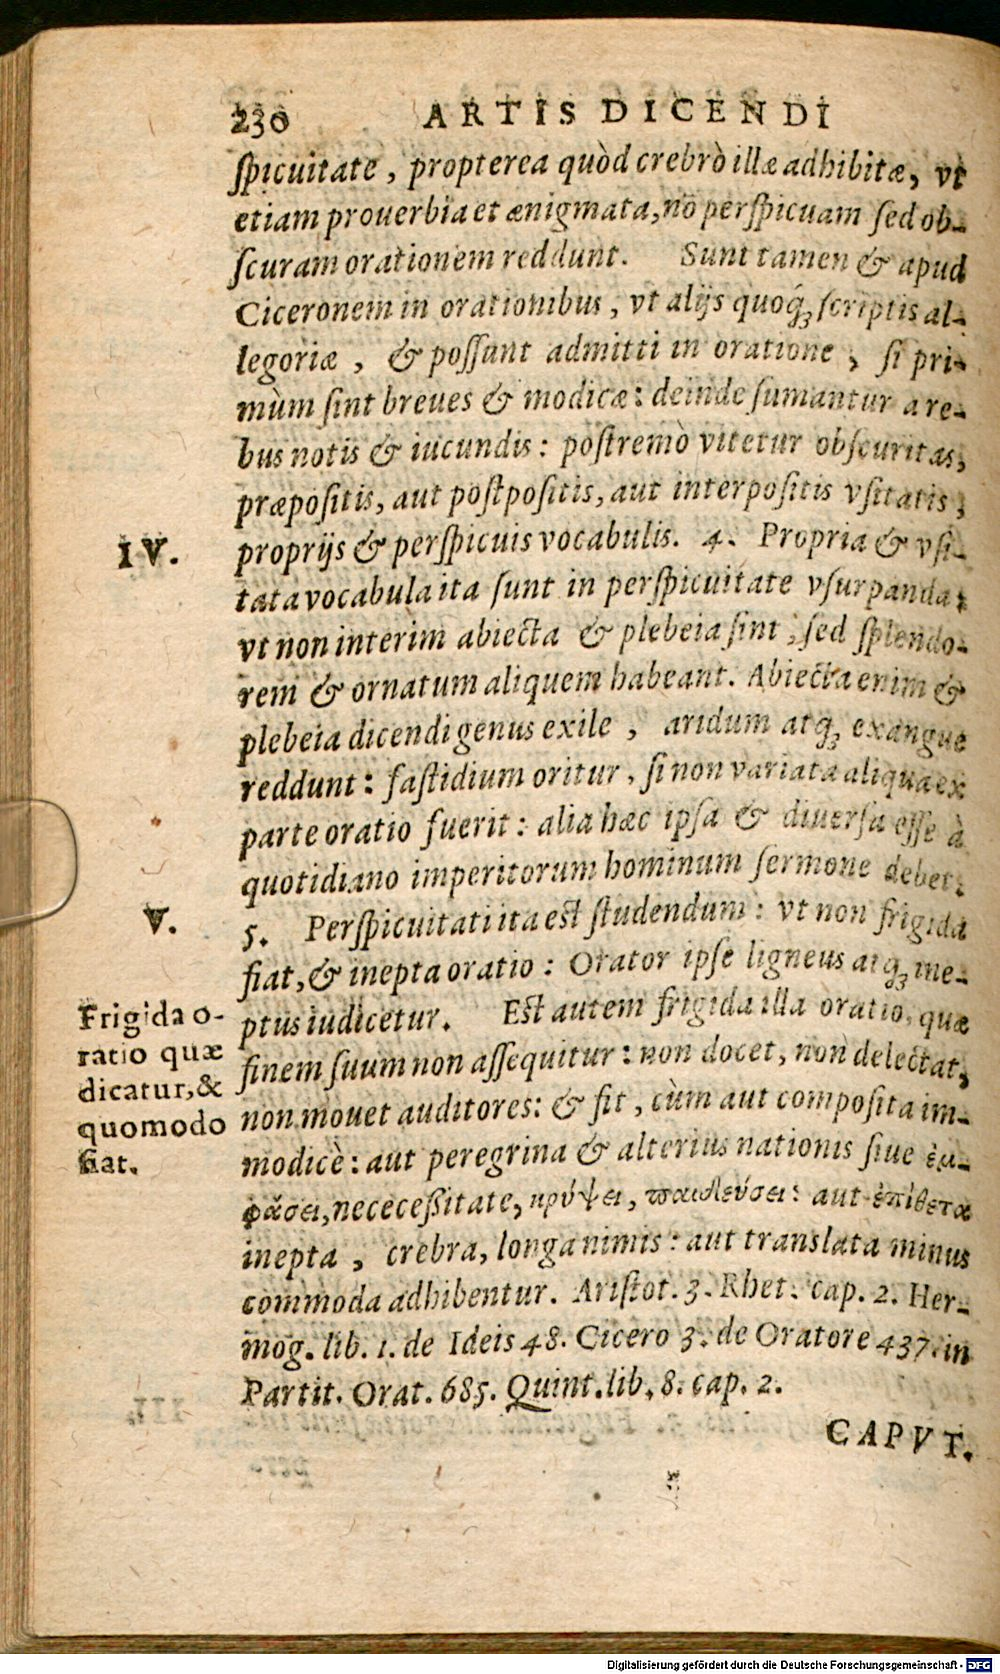 230 ARTIS DICENDI
ſpicuitate, propterea quòd crebrò illæ adhibitæ, vt
etiam prouerbia et ænigmata, nō perſpicuam ſed ob-
ſcuram orationem reddunt. Sunt tamen & apud
Ciceronem in orationibus, vt alijs quoq́; ſcriptis al-
legoriæ, & poſſunt admitti in oratione, ſi pri-
mùm ſint breues & modicæ: deinde ſumantur a re-
bus notis & iucundis: poſtremò vitetur obſcuritas,
præpoſitis, aut poſtpoſitis, aut interpoſitis vſitatis,
proprijs & perſpicuis vocabulis. 4. Propria & vſi-
IV.
tata vocabula ita ſunt in perſpicuitate vſurpanda:
vt non interim abiecta & plebeia ſint, ſed ſplendo-
rem & ornatum aliquem habeant. Abiecta enim &
plebeia dicendi genus exile, aridum atq́; exangue
reddunt: faſtidium oritur, ſi non variata aliqua ex
parte oratio fuerit: alia hæc ipſa & diuerſa eſſe à
quotidiano imperitorum hominum ſermone debet.
V.
5. Perſpicuitati ita eſt ſtudendum: vt non frigida
fiat, & inepta oratio: Orator ipſe ligneus atq́; ine-
ptus iudicetur. Eſt autem frigida illa oratio, quæ
finem ſuum non aſſequitur: non docet, non delectat,
non mouet auditores: & fit, cùm aut compoſita im-
modicè: aut peregrina & alterius nationis ſiue ἐμ-
φάσει, nececeſsitate, κρύψει, παιδεύσει: aut ἐπίθετα
inepta, crebra, longa nimis: aut translata minus
commoda adhibentur. Ariſtot. 3. Rhet. cap. 2. Her-
mog. lib. 1. de Ideis 48. Cicero 3. de Oratore 437. in
Partit. Orat. 685. Quint. lib. 8. cap. 2.
Frigida o-
ratio quæ
dicatur, &
quomodo
fiat.
CAPVT.
Digitalisierung gefördert durch die Deutsche Forschungsgemeinschaft - DFG